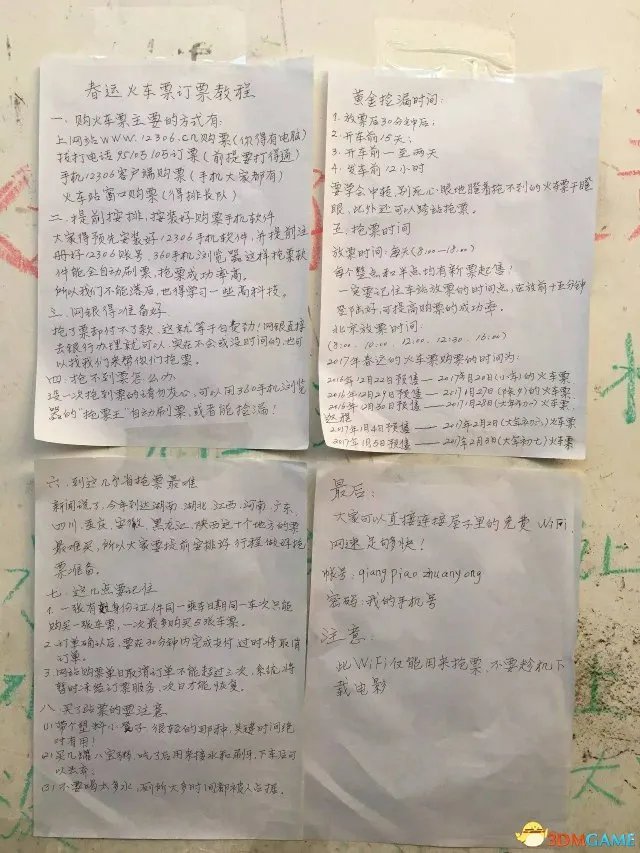 春运火车票订票教程
一.购火车票主要的方式有:
上网站www.12306.cn购票(你得有电脑)
拨打电话95105105订票(前提要打得通)
手机12306客户端购票(手机大家都有)
火车站窗口购票(得排长队)
二.提前按排,按装好购票手机软件
大家得预先安装好12306手机软件,并提前注
册好12306账号.360手机浏览器这样抢票软
件能全自动刷票,抢票成功率高。
所以我们不能落后,也得学习一些高科技。
三.网银得准备好.
抢了票却付不了款,这就等于白费劲!网银直接
去银行办理就可以,实在不会或没时间的,也可
以找我们来帮你们抢票。
四.抢不到票怎么办
没一次抢到票的请勿灰心,可以用360手机浏览
器的"抢票王"自动刷票,或者能捡漏!
黄金捡漏时间:
1.放票后30分钟后;
2.开车前15天;
3.开车前一至两天
4.发车前12小时
要学会中转,别死心眼地瞪着抢不到的火车票干瞪
眼,此外还可以跨站抢票。
五.抢票时间
放票时间:每天(8:00-18:00)
每个整点和半点均有新票起售!
一定要记住车站放票的时间点,在放前十五分钟
登陆好,可提高购票的成功率。
北京放票时间:
(8:00. 10:00. 12:00. 12:30. 16:00)
2017年春运的火车票购票的时间为:
2016年12月22日预售——2017年1月20日(小年)的火车票
2016年12月29日预售——2017年1月27日(除夕)的火车票
2016年12月30日预售——2017年1月28日(大年初一)火车票
返程
2017年1月4日预售——2017年2月2日(大年初六)火车票
2017年1月5日预售——2017年2月3日(大年初七)火车票
六.到这几个省抢票最难
新闻说了,今年到达湖南.湖北.江西.河南.广东.
四川.重庆.安徽.黑龙江.陕西这十个地方的票
最难买,所以大家要提前安排好行程做好抢
票准备。
七.这几点要记住
1.一张有效身份证件同一乘车日期同一车次只能
购买一张车票,一次最多购买5张车票。
2.订单确认后,要在30分钟内完成支付,过时将取消
订单。
3.网站购票单日取消订单不能超过三次,系统将
暂时冻结订票服务,次日才能恢复。
八.买了站票的要注意
(1)带个塑料小凳子,很轻的那种,关键时间绝
对有用!
(2)买几罐八宝粥,吃了后用来接水和刷牙,下车后可
以丢弃;
(3)不要喝太多水,厕所太多时间都被人占据。
最后:
大家可以直接连接屋子里的免费Wi间,
网速足够快!
帐号:qiang piao zhuanyong
密码:我的手机号
注意:
此WiFi仅能用来抢票,不要趁机下
载电影
3DMGAME